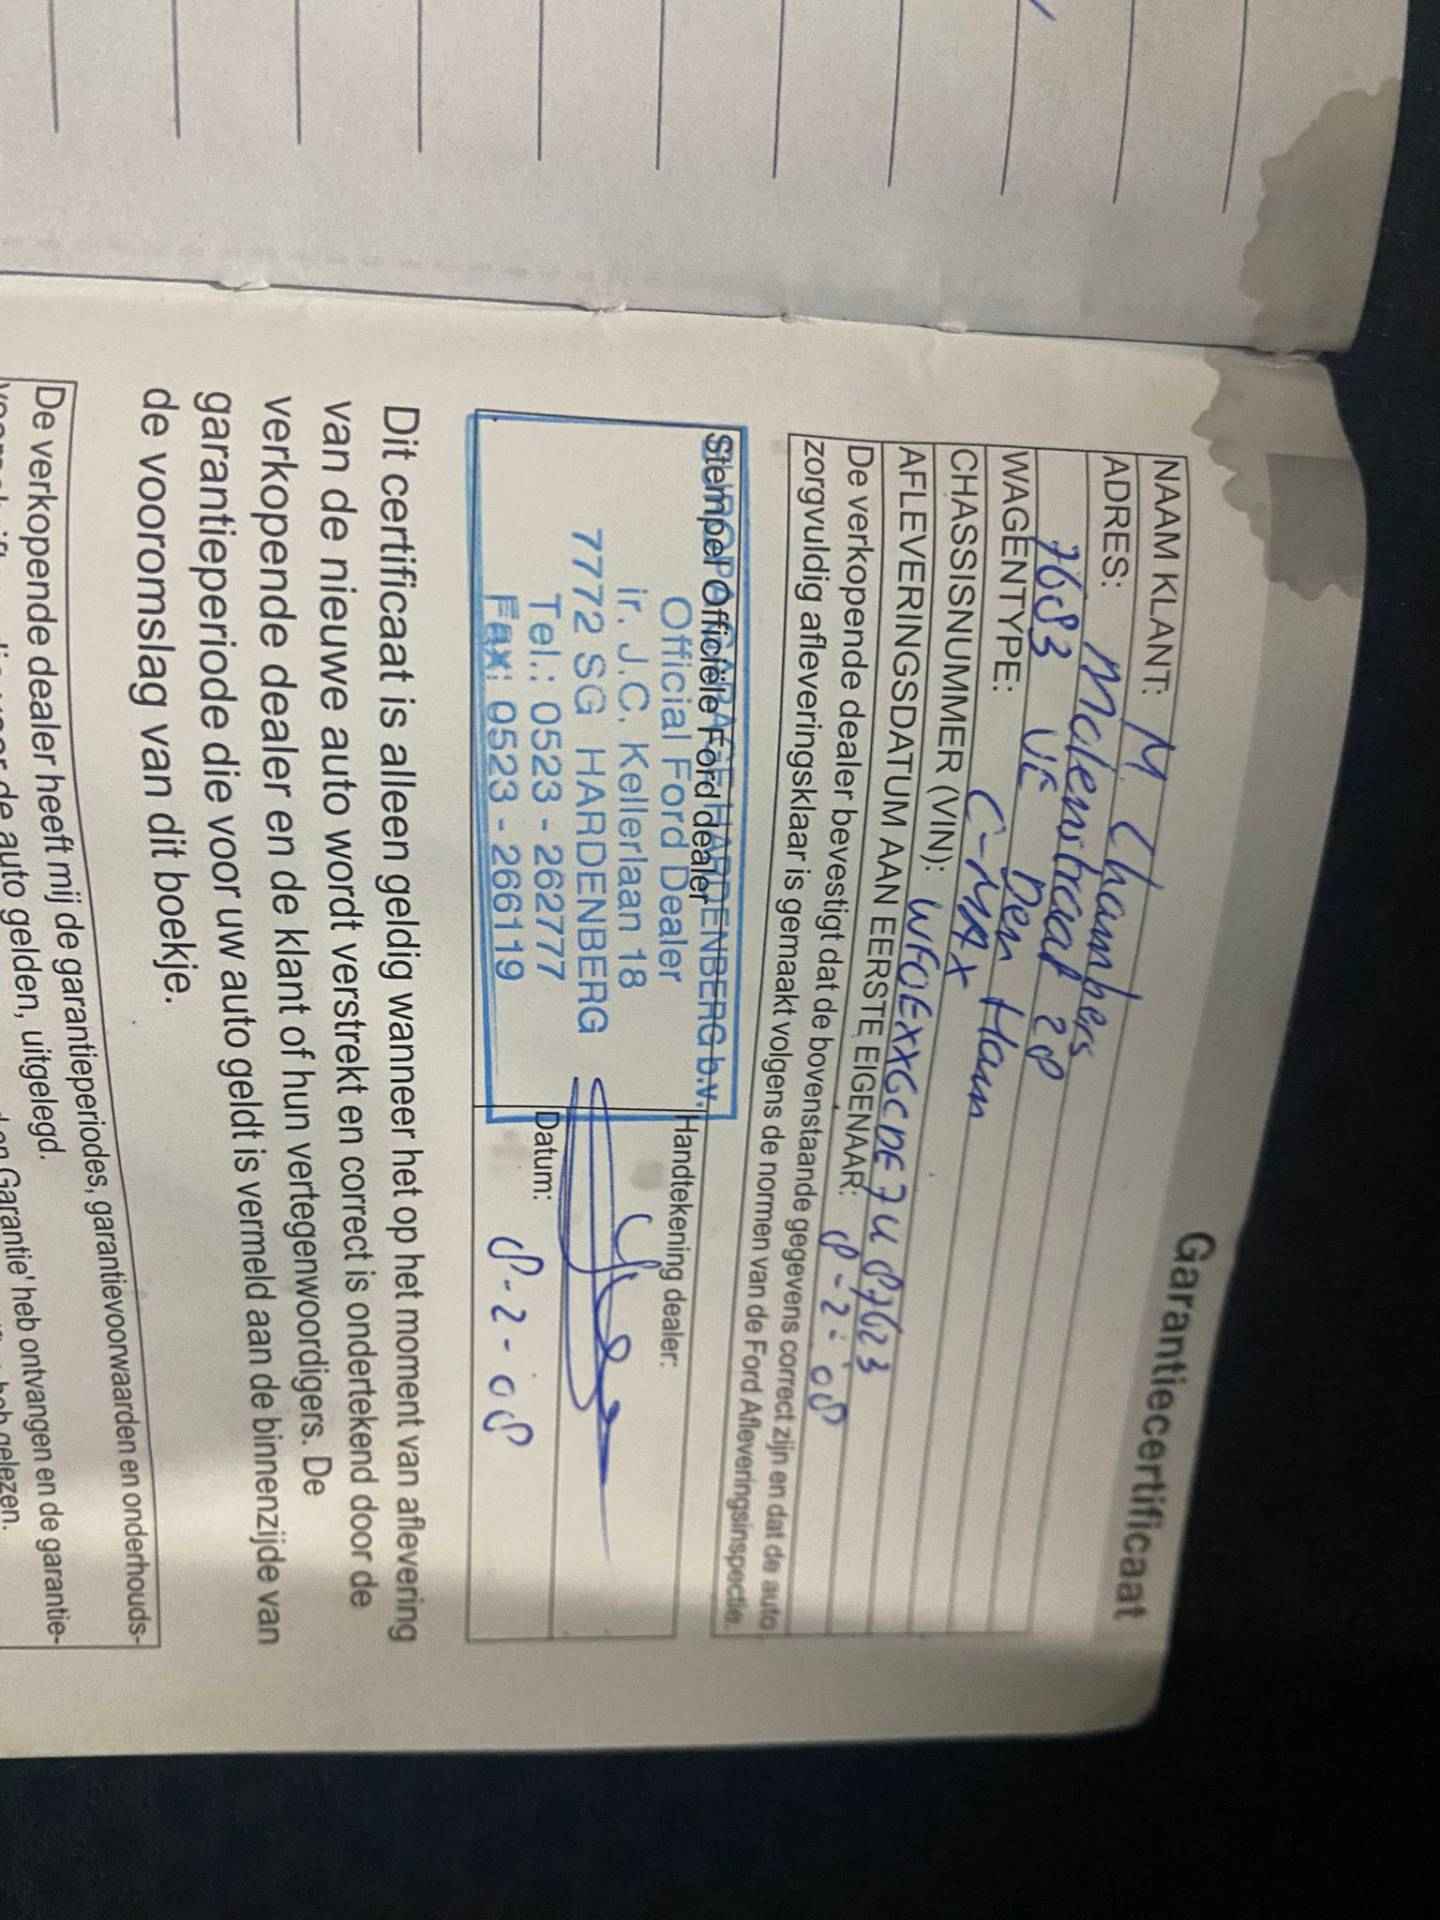 Garantiecertificaat
NAAM KLANT: M Chambers
ADRES: Molenstraat 28
7683 VE Den Ham
WAGENTYPE: C-MAX
CHASSISNUMMER (VIN): WFOEXXGCDE7U87623
AFLEVERINGSDATUM AAN EERSTE EIGENAAR: 8-2-08
De verkopende dealer bevestigt dat de bovenstaande gegevens correct zijn en dat de auto
zorgvuldig afleveringsklaar is gemaakt volgens de normen van de Ford Afleveringsinspectie.
Stempel Officiële Ford dealer
HARDENBERG b.v.
Official Ford Dealer
ir. J.C. Kellerlaan 18
7772 SG HARDENBERG
Tel.: 0523 - 262777
Fax: 0523 - 266119
Handtekening dealer:
Datum: 8-2-08
Dit certificaat is alleen geldig wanneer het op het moment van aflevering
van de nieuwe auto wordt verstrekt en correct is ondertekend door de
verkopende dealer en de klant of hun vertegenwoordigers. De
garantieperiode die voor uw auto geldt is vermeld aan de binnenzijde van
de vooromslag van dit boekje.
De verkopende dealer heeft mij de garantieperiodes, garantievoorwaarden en onderhouds-
de auto gelden, uitgelegd.
Garantie' heb ontvangen en de garantie-
gelezen.